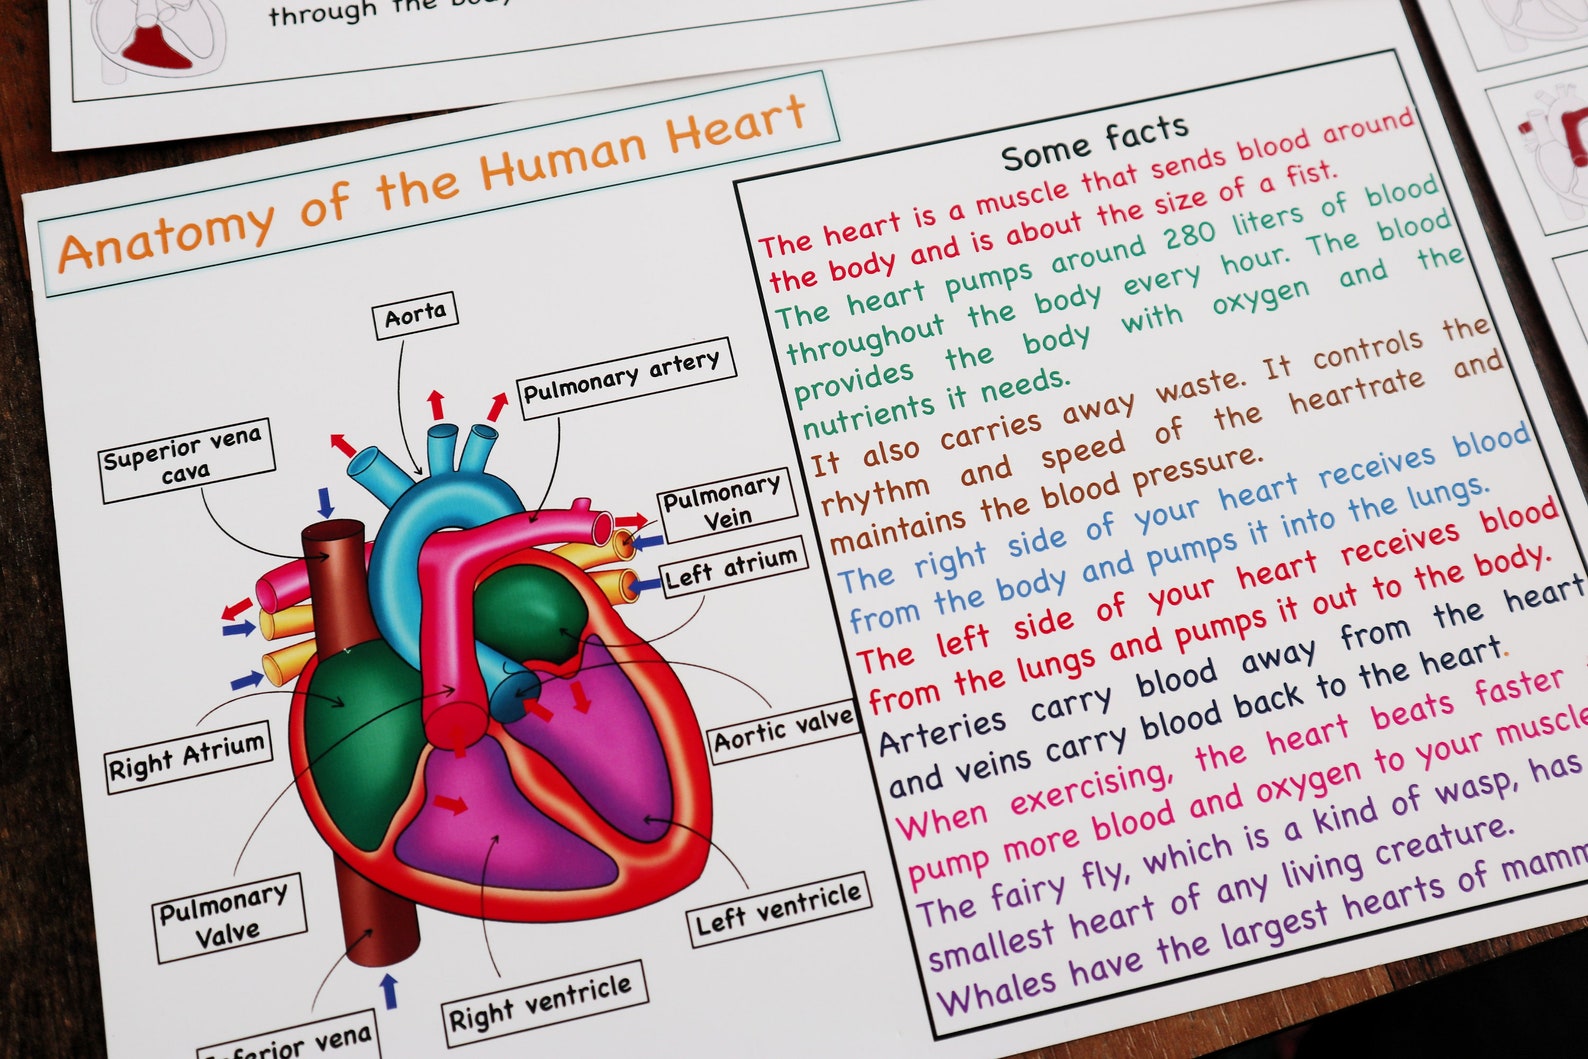 through the
Anatomy of the Human Heart
Aorta
Pulmonary artery
Superior vena
cava
Pulmonary
Vein
Left atrium
Right Atrium
Aortic valve
Pulmonary
Valve
Left ventricle
Right ventricle
vena
Some facts
The heart is a muscle that sends blood around
the body and is about the size of a fist.
The heart pumps around 280 liters of blood
throughout the body every hour. The blood
provides the body with oxygen and the
nutrients it needs.
It also carries away waste. It controls the
rhythm and speed of the heartrate and
maintains the blood pressure.
The right side of your heart receives blood
from the body and pumps it into the lungs.
The left side of your heart receives blood
from the lungs and pumps it out to the body.
Arteries carry blood away from the heart
and veins carry blood back to the heart.
When exercising, the heart beats faster
pump more blood and oxygen to your muscle
The fairy fly, which is a kind of wasp, has
smallest heart of any living creature.
Whales have the largest hearts of